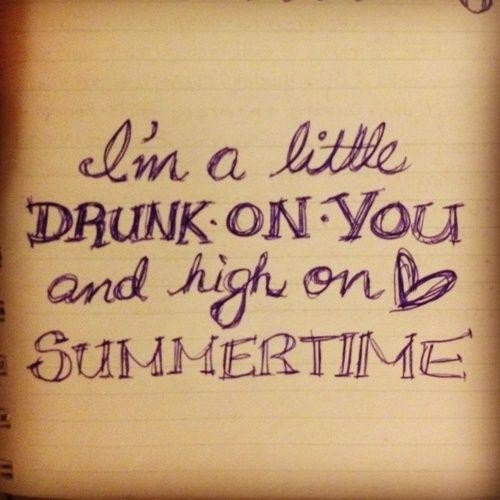 I'm a little
DRUNK·ON·YOU
and high on
SUMMERTIME